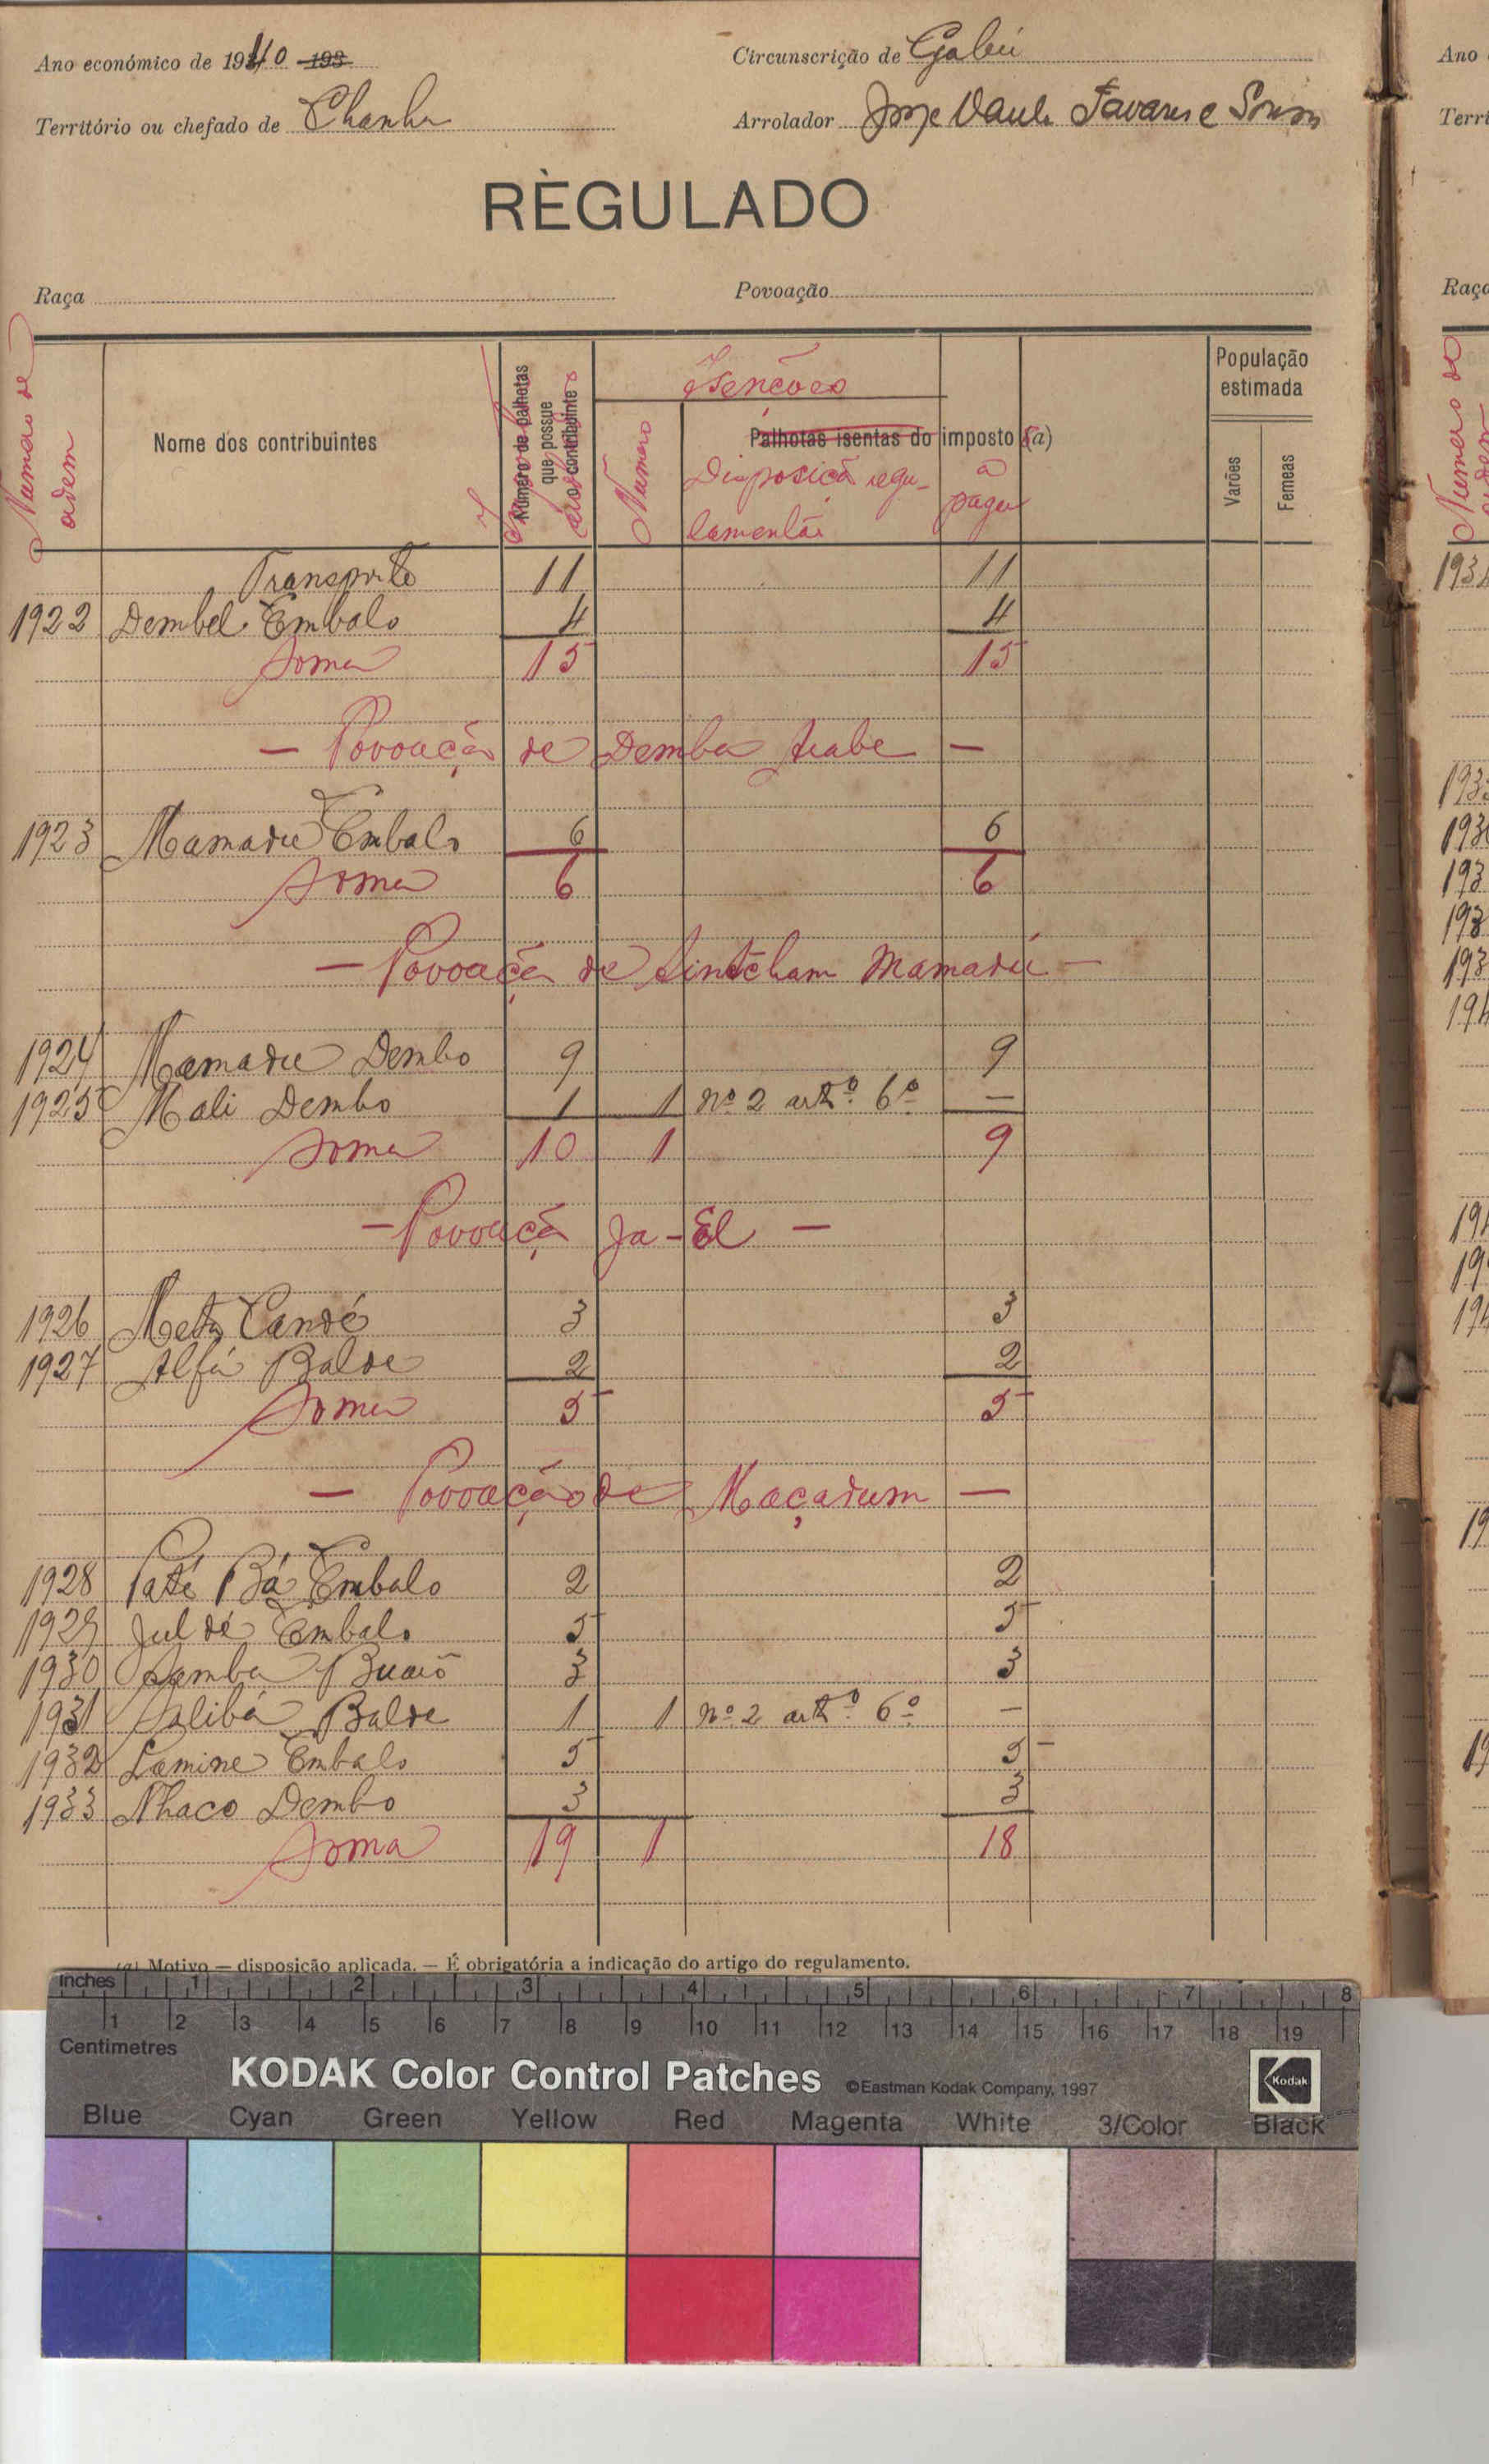 Ano económico de 1940 193
Circunscrição de Gabú
Território ou chefado de Chanha
Arrolador Jorge Tavares e Sousa
RÈGULADO
Raça
Povoação
Numero de ordem
Nome dos contribuintes
Número de palhotas que possue o contribuinte
Isenções
Numero
Palhotas isentas do imposto (a)
Disposiçã regulamentár
a pagar
População estimada
Varões
Femeas
Transporte 11 11
1922 Dembel Embalo 4 4
Soma 15 15
— Povoação de Demba Arabe —
1923 Mamadu Embalo 6 6
Soma 6 6
— Povoaçã de Sintcham Mamadú —
1924 Mamadu Dembo 9 9
1925 Mali Dembo 1 1 nº 2 artº 6º —
Soma 10 1 9
— Povoaçã Ja-El —
1926 Meta Candé 3 3
1927 Alfá Balde 2 2
Soma 5 5
— Povoação de Maçadum —
1928 Paté Bá Embalo 2 2
1929 Juldé Embalo 5 5
1930 Samba Buaró 3 3
1931 Salibá Balde 1 1 nº 2 artº 6º —
1932 Lamine Embalo 5 5
1933 Nhaco Dembo 3 3
Soma 19 1 18
(a) Motivo — disposição aplicada. — É obrigatória a indicação do artigo do regulamento.
Inches 1 2 3 4 5 6 7 8
1 2 3 4 5 6 7 8 9 10 11 12 13 14 15 16 17 18 19
Centimetres
KODAK Color Control Patches ©Eastman Kodak Company, 1997 Kodak
Blue Cyan Green Yellow Red Magenta White 3/Color Black